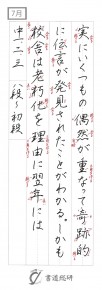 7月
実にいくつもの偶然が重なって奇跡的
に伝言が発見されたことがわかる。しかも
校舎は老朽化を理由に翌年には
中一・二・三 八段〜初段
書道総研